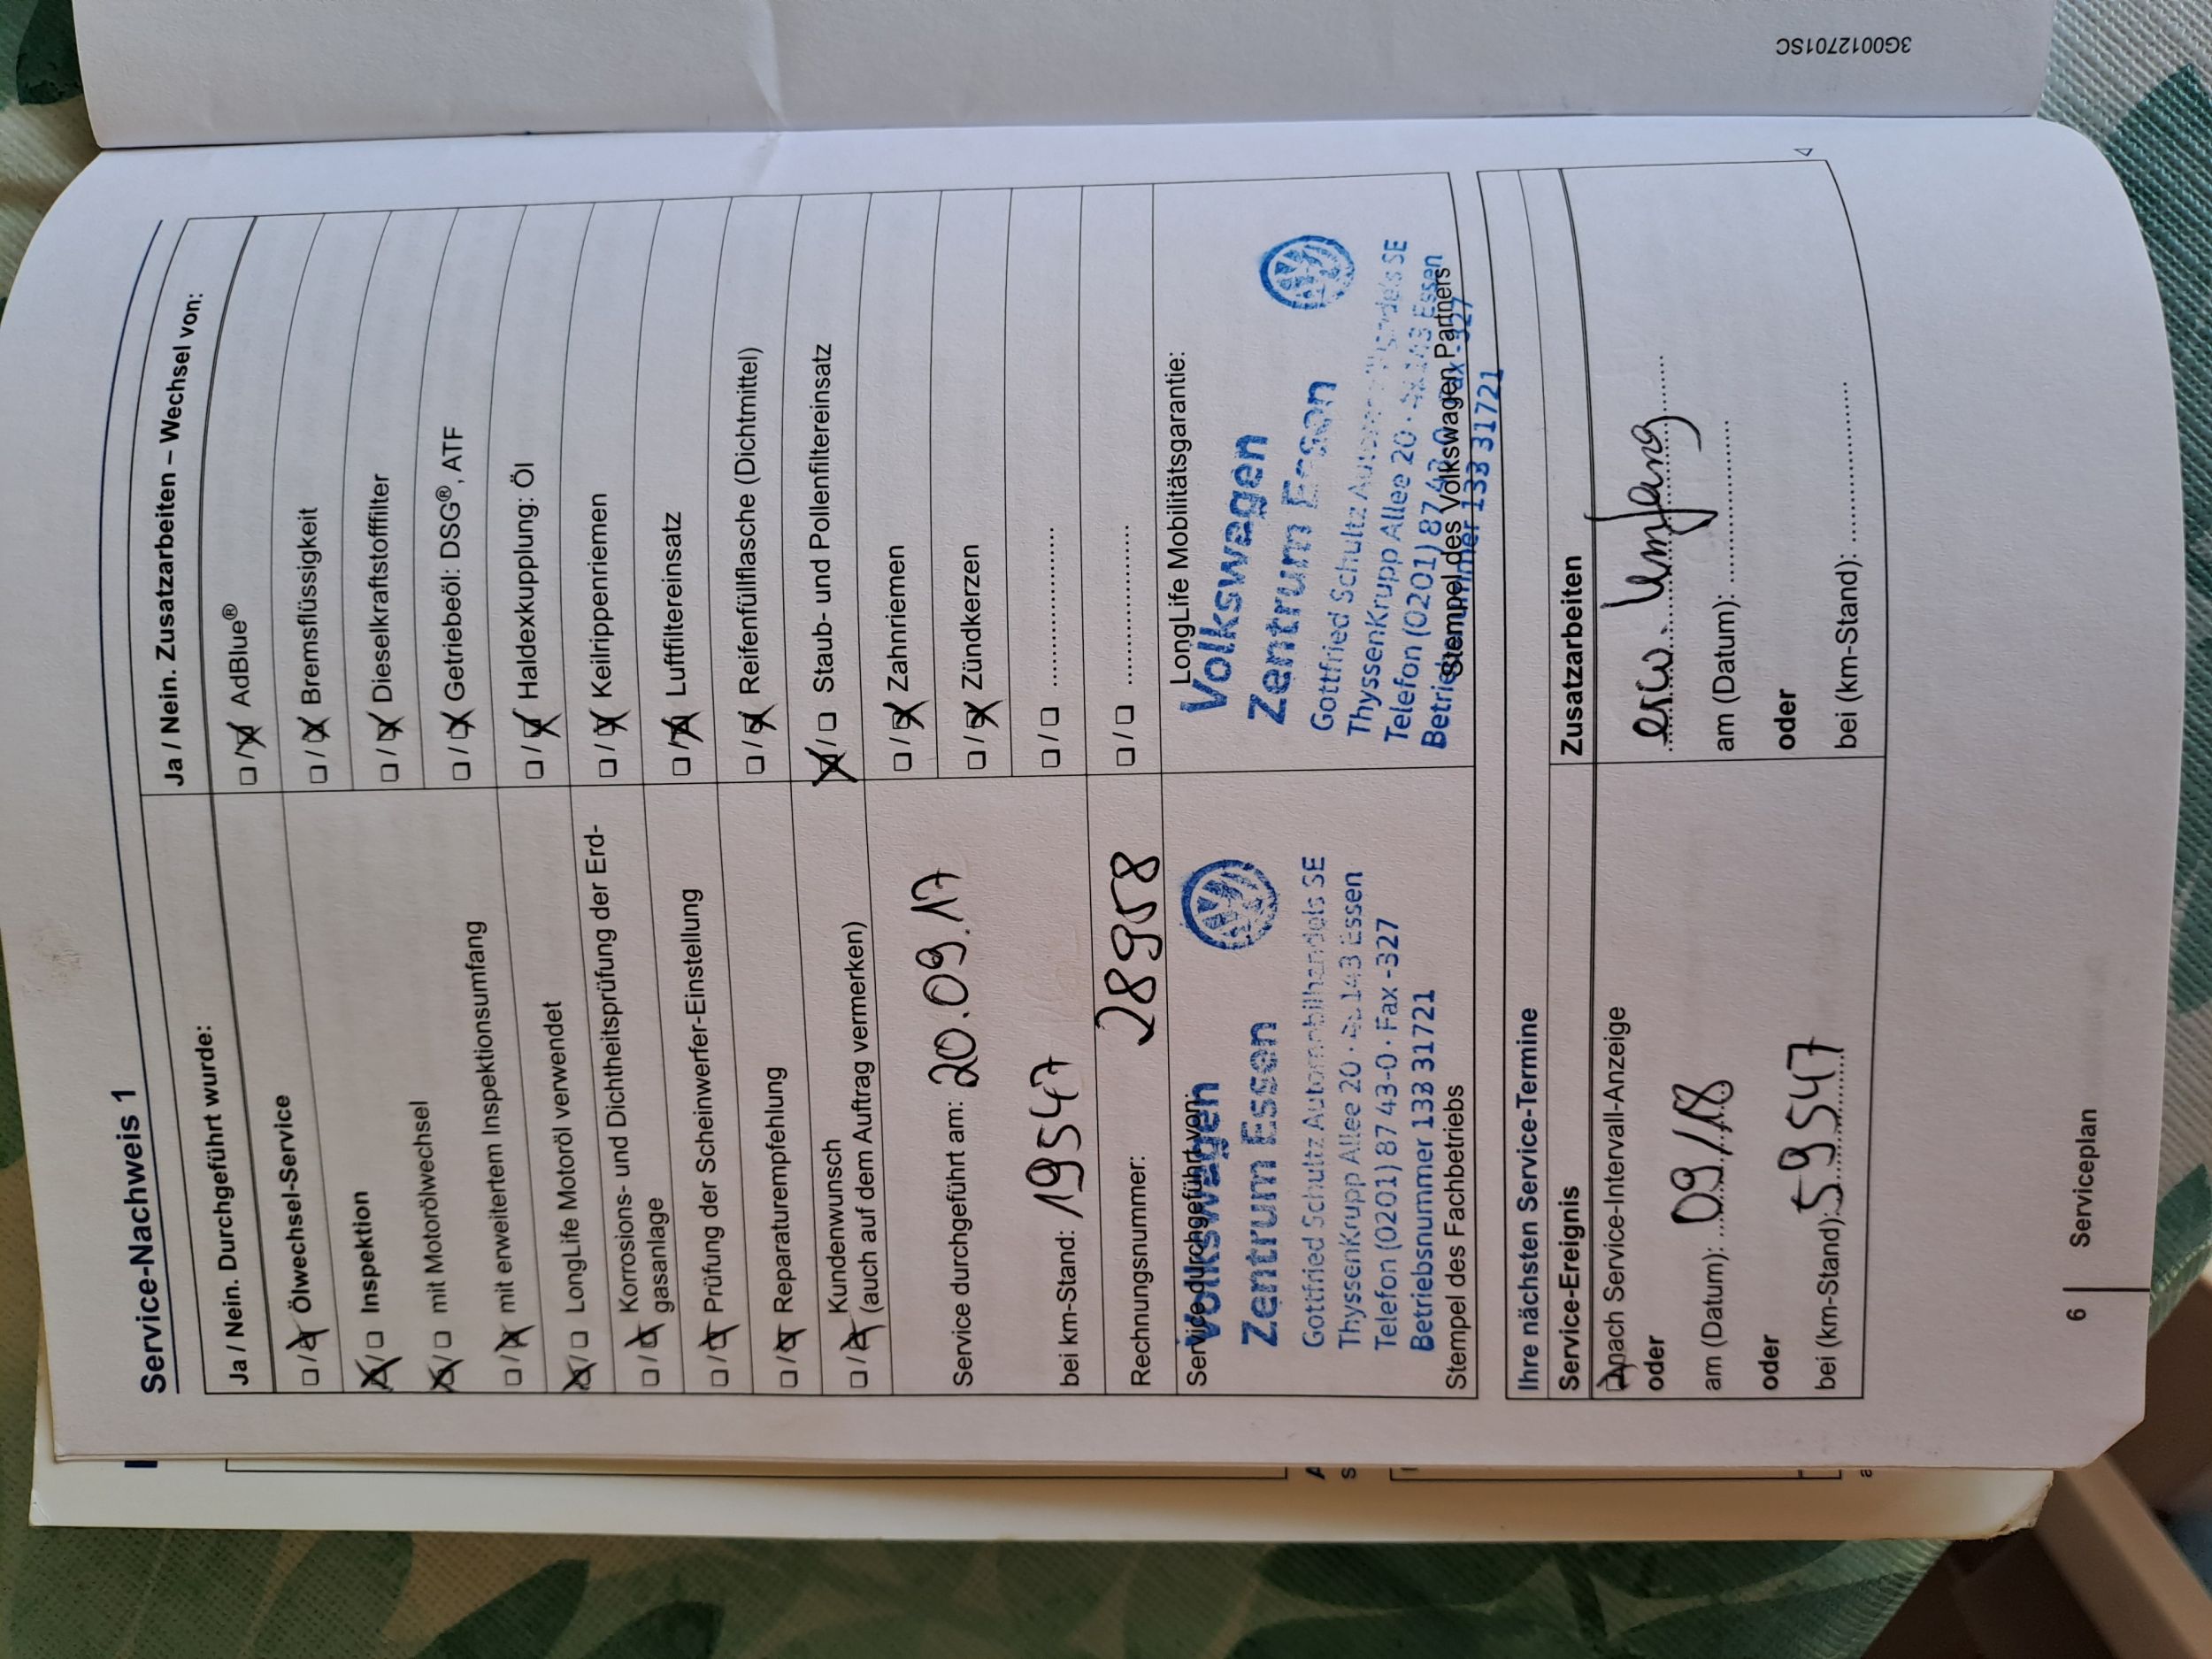 3G0012701SC
Service-Nachweis 1
Ja / Nein. Durchgeführt wurde:
Ölwechsel-Service
Inspektion
mit Motorölwechsel
mit erweitertem Inspektionsumfang
LongLife Motoröl verwendet
Korrosions- und Dichtheitsprüfung der Erd-
gasanlage
Prüfung der Scheinwerfer-Einstellung
Reparaturempfehlung
Kundenwunsch
(auch auf dem Auftrag vermerken)
Service durchgeführt am: 20.09.17
bei km-Stand: 19547
Rechnungsnummer: 28958
Service durchgeführt von:
Volkswagen
Zentrum Essen
Gottfried Schultz Automobilhandels SE
ThyssenKrupp Allee 20 · 45143 Essen
Telefon (0201) 87 43-0 · Fax -327
Betriebsnummer 133 31721
Stempel des Fachbetriebs
Ja / Nein. Zusatzarbeiten – Wechsel von:
AdBlue®
Bremsflüssigkeit
Dieselkraftstofffilter
Getriebeöl: DSG®, ATF
Haldexkupplung: Öl
Keilrippenriemen
Luftfiltereinsatz
Reifenfüllflasche (Dichtmittel)
Staub- und Pollenfiltereinsatz
Zahnriemen
Zündkerzen
LongLife Mobilitätsgarantie:
Volkswagen
Zentrum Essen
Gottfried Schultz Automobilhandels SE
ThyssenKrupp Allee 20 · 45143 Essen
Telefon (0201) 87 43-0 Fax -327
Betriebsnummer 133 31721
Stempel des Volkswagen Partners
Ihre nächsten Service-Termine
Service-Ereignis
nach Service-Intervall-Anzeige
oder
am (Datum): 09/18
oder
bei (km-Stand): 59547
Zusatzarbeiten
erw. Umfang
am (Datum):
oder
bei (km-Stand):
6
Serviceplan